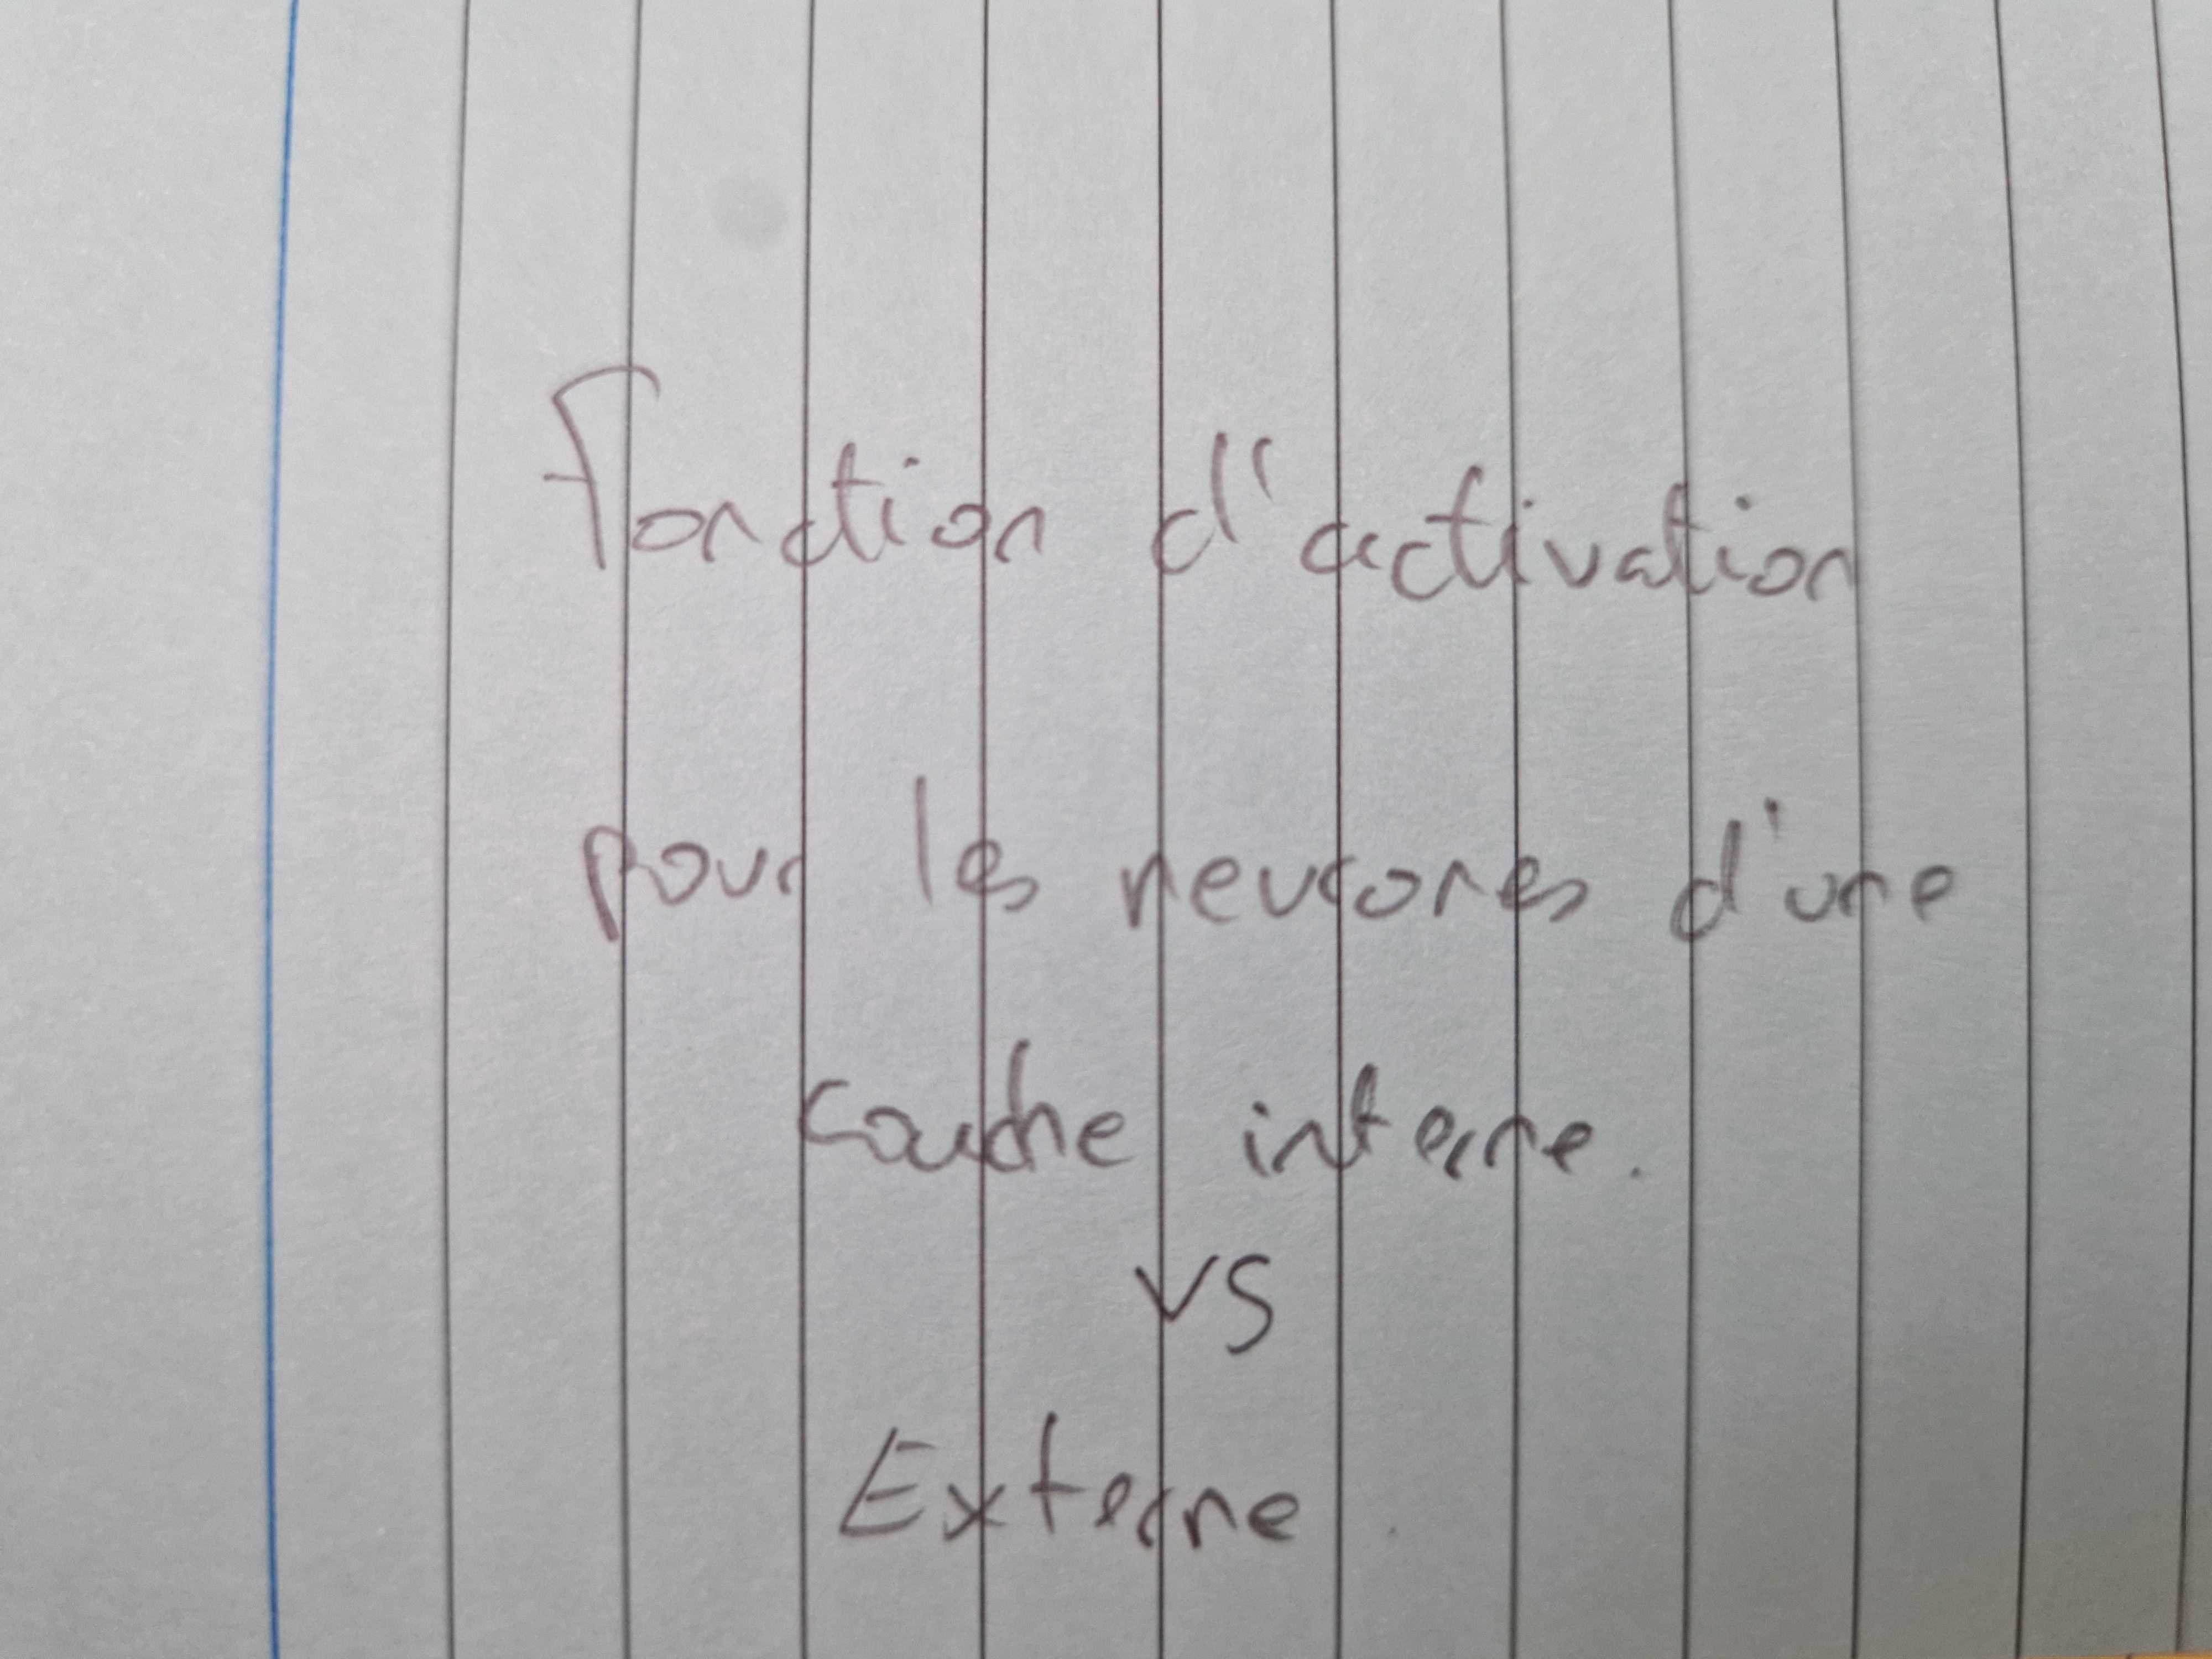 Fonction d'activation
pour les neurones d'une
couche interne.
VS
Externe.